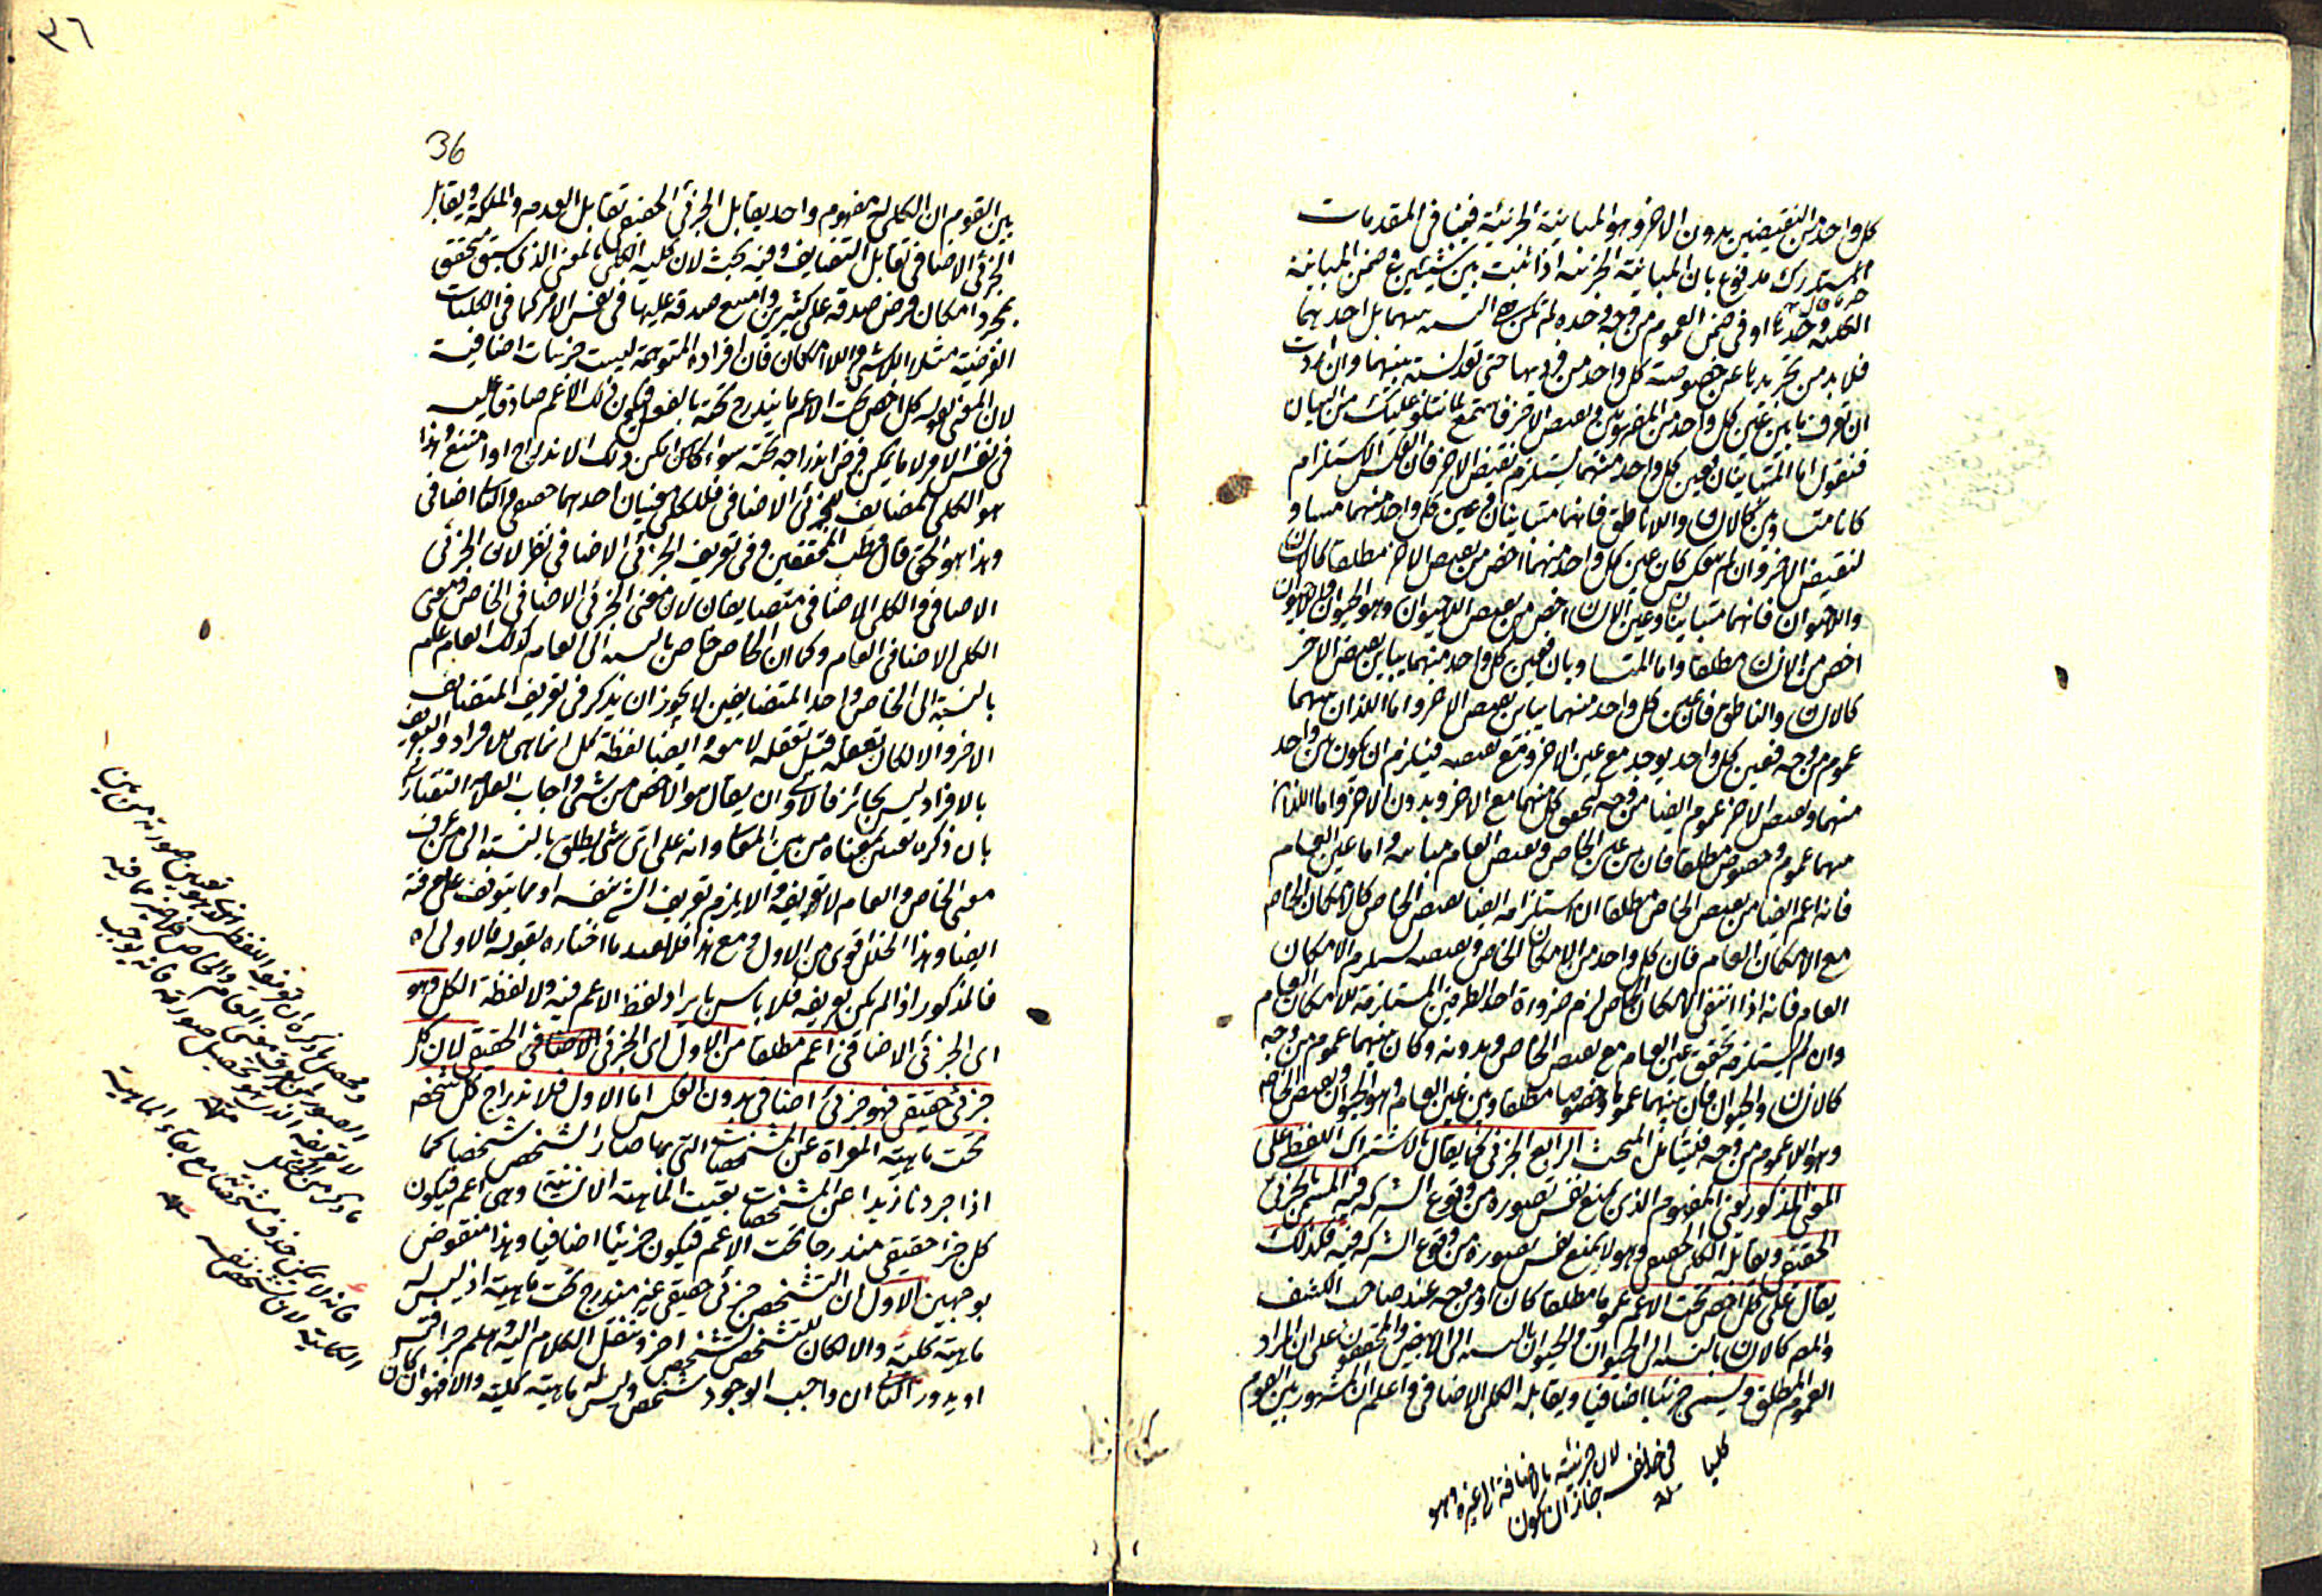 كل واحد من النقيضين بدون الاخر وهو المباينة الجزئية فيما في المقدمات
المستدرك مدفوع بان المباينة الجزئية اذا ثبت بين شيئين في ضمن المباينة
الكلية وحدها او في ضمن العموم من وجه وحده لم تكن النسبة بينهما بل احديهما
فلا بد من تجريدها عن خصوصية كل واحد من فرديها حتى تعد نسبة بينهما وان اردت
ان تعرف ما بين عين كل واحد من المفهومين ونقيض الاخر فاستمع لما نتلو عليك من البيان
فنقول اما المتباينان فعين كل واحد منهما يستلزم نقيض الاخر فان انعكس الاستلزام
كانا متساويين كالانسان واللاناطق فانهما متباينان وعين كل واحد منهما مساو
لنقيض الاخر وان لم ينعكس كان عين كل واحد منهما اخص من نقيض الاخر مطلقا كالانسان
واللاحيوان فانهما متباينان وعين الانسان اخص من نقيض اللاحيوان وهو الحيوان واللاحيوان
اخص من اللاانسان مطلقا واما المتساويان فعين كل واحد منهما يباين نقيض الاخر
كالانسان والناطق فان عين كل واحد منهما يباين نقيض الاخر واما اللذان بينهما
عموم من وجه فعين كل واحد يوجد مع عين الاخر ومع نقيضه فيلزم ان يكون بين واحد
منهما ونقيض الاخر عموم ايضا من وجه لتحقق كل منهما مع الاخر وبدون الاخر واما اللذان
بينهما عموم وخصوص مطلقا فان بين عين الخاص ونقيض العام مباينة واما عين العام
فانه اعم ايضا من نقيض الخاص مطلقا ان استلزامه ايضا نقيض الخاص كالامكان الخاص
مع الامكان العام فان كل واحد من الامكان الخاص ونقيضه يستلزم الامكان
العام فانه اذا انتفى الامكان الخاص لزم ضرورة احد الطرفين المستلزمة للامكان العام
وان لم يستلزمه تحقق عين العام مع نقيض الخاص وبدونه وكان بينهما عموم من وجه
كالانسان والحيوان فان بينهما عموما وخصوصا مطلقا وبين عين العام وهو الحيوان ونقيض الخاص
وهو اللا عموم من وجه فليتأمل المبحث الرابع الجزئي كما يقال بالاشتراك اللفظي على
المعنى المذكور يعني المفهوم الذي يمنع نفس تصوره من وقوع الشركة فيه المسمى بالجزئي
الحقيقي ويقابله الكلي الحقيقي وهو لا يمنع نفس تصوره من وقوع الشركة فيه فكذلك
يقال على كل اخص تحت الاعم عموما مطلقا كان او من وجه عند صاحب الكشف
والمص كالانسان بالنسبة الى الحيوان والحيوان بالنسبة الى الابيض والمحققون على ان المراد
العموم المطلق ويسمى جزئيا اضافيا ويقابله الكلي الاضافي واعلم ان المشهور بين القوم
لان جزئيته بالاضافة الى غيره وهو
في نفسه جاز ان يكون
كليا منه
٣٦
36
بين القوم ان الكلي له مفهوم واحد يقابل الجزئي الحقيقي تقابل العدم والملكة ويقابل
الجزئي الاضافي تقابل التضايف وفيه بحث لان كلية الكلي بالمعنى الذي سبق تحقق
بمجرد امكان فرض صدقه على كثيرين وامتنع صدقه عليها في نفس الامر كما في الكليات
الفرضية مثل اللاشيء واللاامكان فان افراده المتوهمة ليست جزئيات اضافية
لان المعنى بقوله كل اخص تحت الاعم ما يندرج تحته بالفعل فيكون ذلك الاعم صادقا عليه
في نفس الامر لا ما يمكن فرض اندراجه تحته سواء كان امكن ذلك الاندراج او امتنع وهذا
هو الكلي المضايف للجزئي الاضافي فللكلي معنيان احدهما حقيقي والثاني اضافي
وهذا هو الحق قال قطب المحققين وفي تعريف الجزئي الاضافي نظر لان الجزئي
الاضافي والكلي الاضافي متضايفان لان معنى الجزئي الاضافي الخاص ومعنى
الكلي الاضافي العام وكما ان الخاص خاص بالنسبة الى العام كذلك العام عام
بالنسبة الى الخاص واحد المتضايفين لا يجوز ان يذكر في تعريف المتضايف
الاخر والا لكان تعقله قبل تعقله لا معه وايضا لفظة كل انما هي للافراد والتعريف
بالافراد ليس بجائز فالاولى ان يقال هو الاخص من شيء واجاب العلامة التفتازاني
بان ذكره يعين معناه من بين المعاني وانه على اي شيء يطلق بالنسبة الى من عرف
معنى الخاص والعام لا تعريفه والا يلزم تعريف الشيء بنفسه او بما يتوقف على معرفته
ايضا وهذا الخلل اقوى من الاول ومع هذا فلا يفيد ما اختاره بقوله فالاولى اه
فالمذكور اذا لم يكن تعريفه فلا باس بايراد لفظ الاعم فيه ولا لفظة الكل وهو
اي الجزئي الاضافي اعم مطلقا من الاول اي الجزئي الاضافي الحقيقي لان كل
جزئي حقيقي فهو جزئي اضافي بدون العكس اما الاول فلاندراج كل شخص
تحت ماهيته المعراة عن المشخصات التي بها صار الشخص شخصا كما
اذا جردنا زيدا عن المشخصات بقيت الماهية الانسانية وهي اعم فيكون
كل جزئي حقيقي مندرجا تحت الاعم فيكون جزئيا اضافيا وهذا منقوض
بوجهين الاول ان التشخص جزئي حقيقي غير مندرج تحت ماهية اذ ليس له
ماهية كلية والا لكان للتشخص تشخص اخر وننقل الكلام اليه وهلم جرا فيتسلسل
او يدور الثاني ان واجب الوجود شخص وليس له ماهية كلية والا فهو ان كان
ومحصل ما ذكره ان تعريفه اللفظي
لا تعريفه الذي هو تحصيل صورة فانه يوجب
ما ذكر من الخلل
منه
فانه لا يمكن حذف مشخصه مع بقاء الماهية
الكلية لان تشخصه نفسه منه